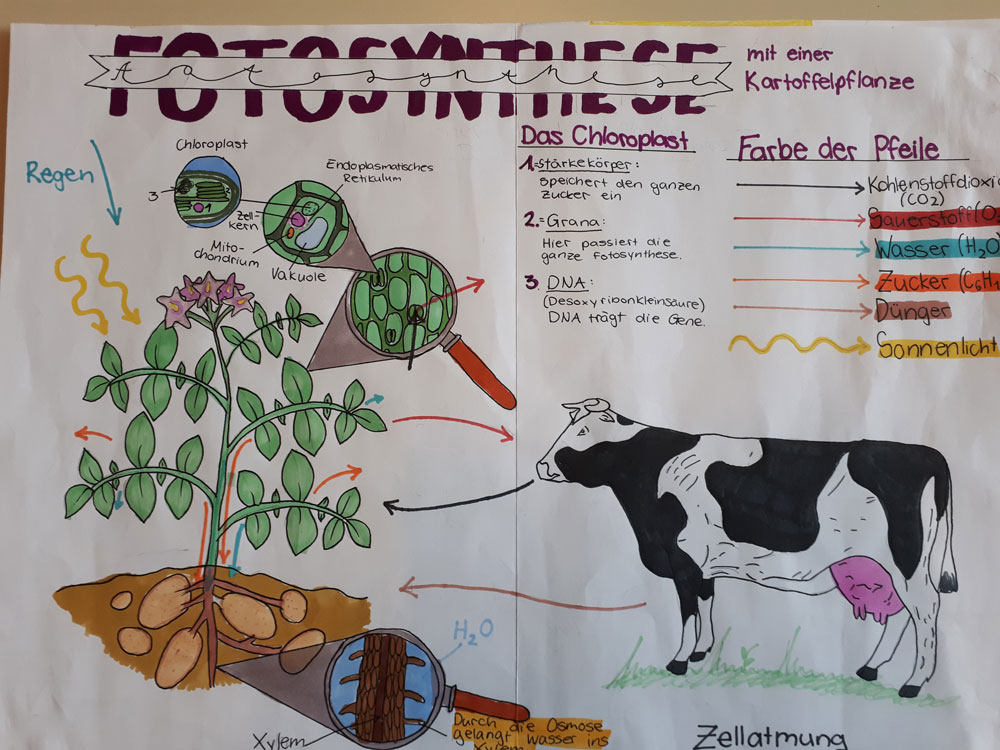 FOTOSYNTHESE
Fotosynthese
mit einer
Kartoffelpflanze
Regen
Chloroplast
3
1
Endoplasmatisches
Retikulum
Zell-
kern
Mito-
chondrium
Vakuole
Das Chloroplast
1.=Stärkekörper:
speichert den ganzen
Zucker ein
2.=Grana:
Hier passiert die
ganze fotosynthese.
3. DNA:
(Desoxyribonkleinsäure)
DNA trägt die Gene.
Farbe der Pfeile
Kohlenstoffdioxi
(CO2)
Sauerstoff(O
Wasser (H2O)
Zucker (C6H1
Dünger
Sonnenlicht
H2O
Xylem
Durch die Osmose
gelangt wasser ins
Xylem
Zellatmung